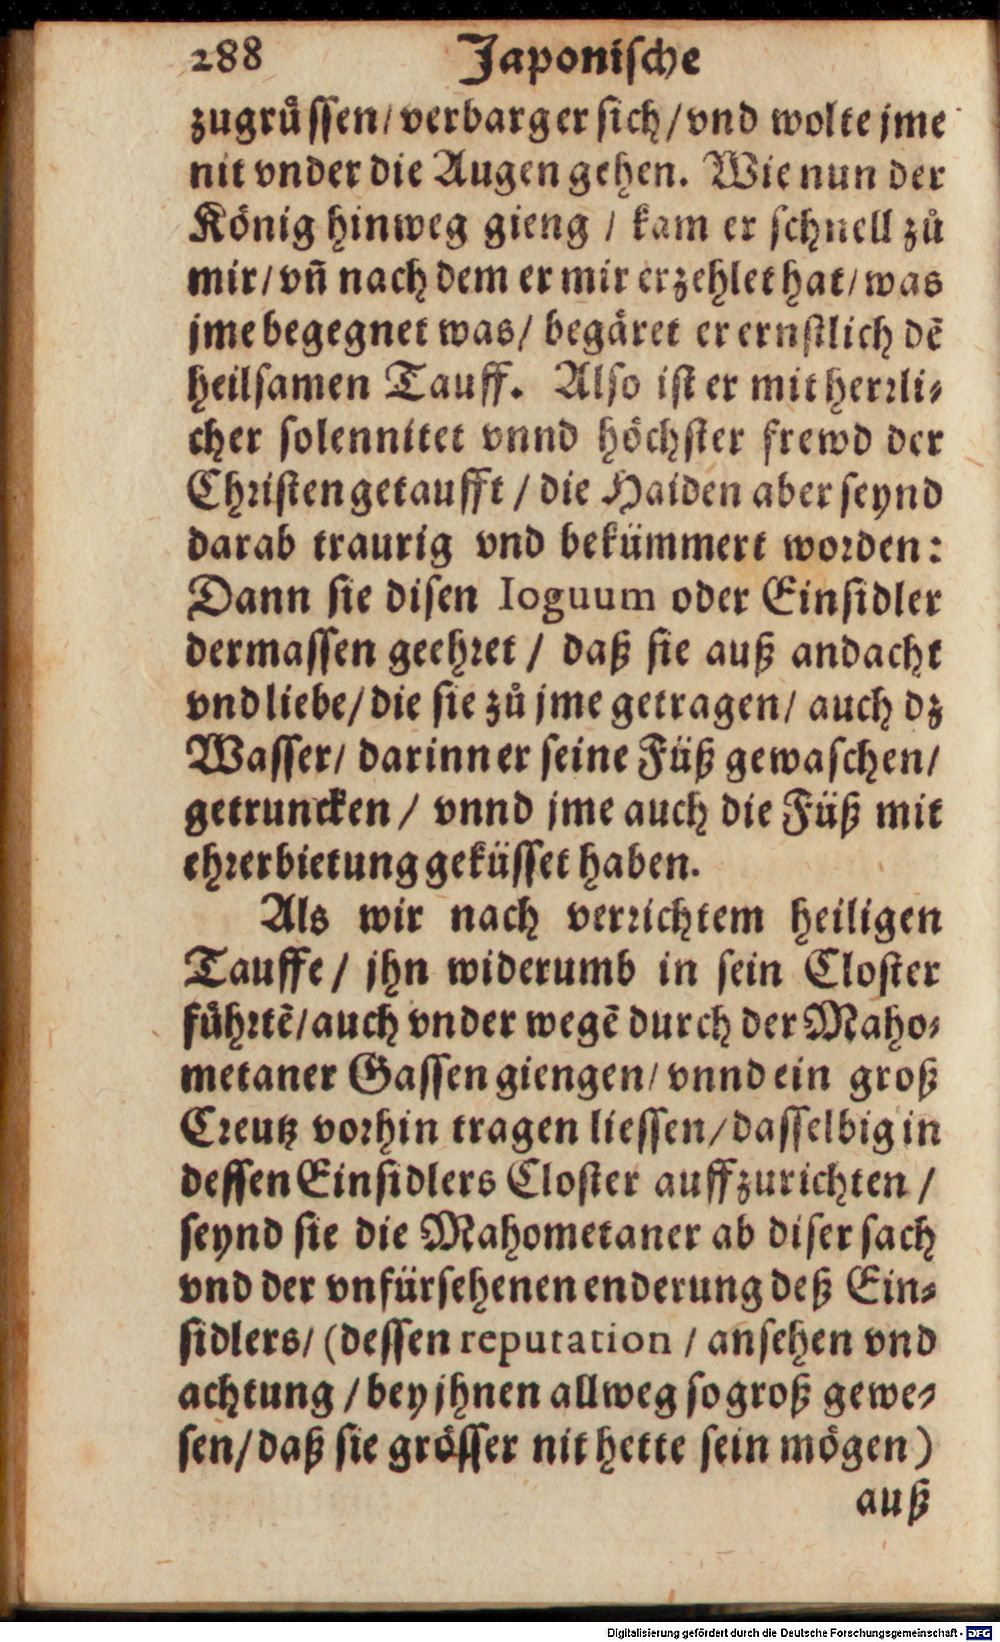 288 Japoniſche
zugruͤſſen/ verbarg er ſich/ vnd wolte jme
nit vnder die Augen gehen. Wie nun der
Koͤnig hinweg gieng / kam er ſchnell zuͦ
mir/ vñ nach dem er mir erzehlet hat/ was
jme begegnet was/ begaͤret er ernſtlich dẽ
heilſamen Tauff. Alſo iſt er mit herꝛli⸗
cher ſolennitet vnnd hoͤchſter frewd der
Chꝛiſten getaufft / die Haiden aber ſeynd
darab traurig vnd bekuͤmmert woꝛden:
Dann ſie diſen Ioguum oder Einſidler
dermaſſen geehꝛet / daß ſie auß andacht
vnd liebe/ die ſie zuͦ jme getragen/ auch dz
Waſſer/ darinn er ſeine Fuͤß gewaſchen/
getruncken / vnnd jme auch die Fuͤß mit
ehꝛerbietung gekuͤſſet haben.
Als wir nach verꝛichtem heiligen
Tauffe / jhn widerumb in ſein Cloſter
fuͤhꝛtẽ/ auch vnder wegẽ durch der Maho⸗
metaner Gaſſen giengen/ vnnd ein groß
Cꝛeutz voꝛhin tragen lieſſen/ daſſelbig in
deſſen Einſidlers Cloſter auffzurichten /
ſeynd ſie die Mahometaner ab diſer ſach
vnd der vnfuͤrſehenen enderung deß Ein⸗
ſidlers/ (deſſen reputation / anſehen vnd
achtung / bey jhnen allweg ſo groß gewe⸗
ſen/ daß ſie groͤſſer nit hette ſein moͤgen)
auß
Digitalisierung gefördert durch die Deutsche Forschungsgemeinschaft - DFG